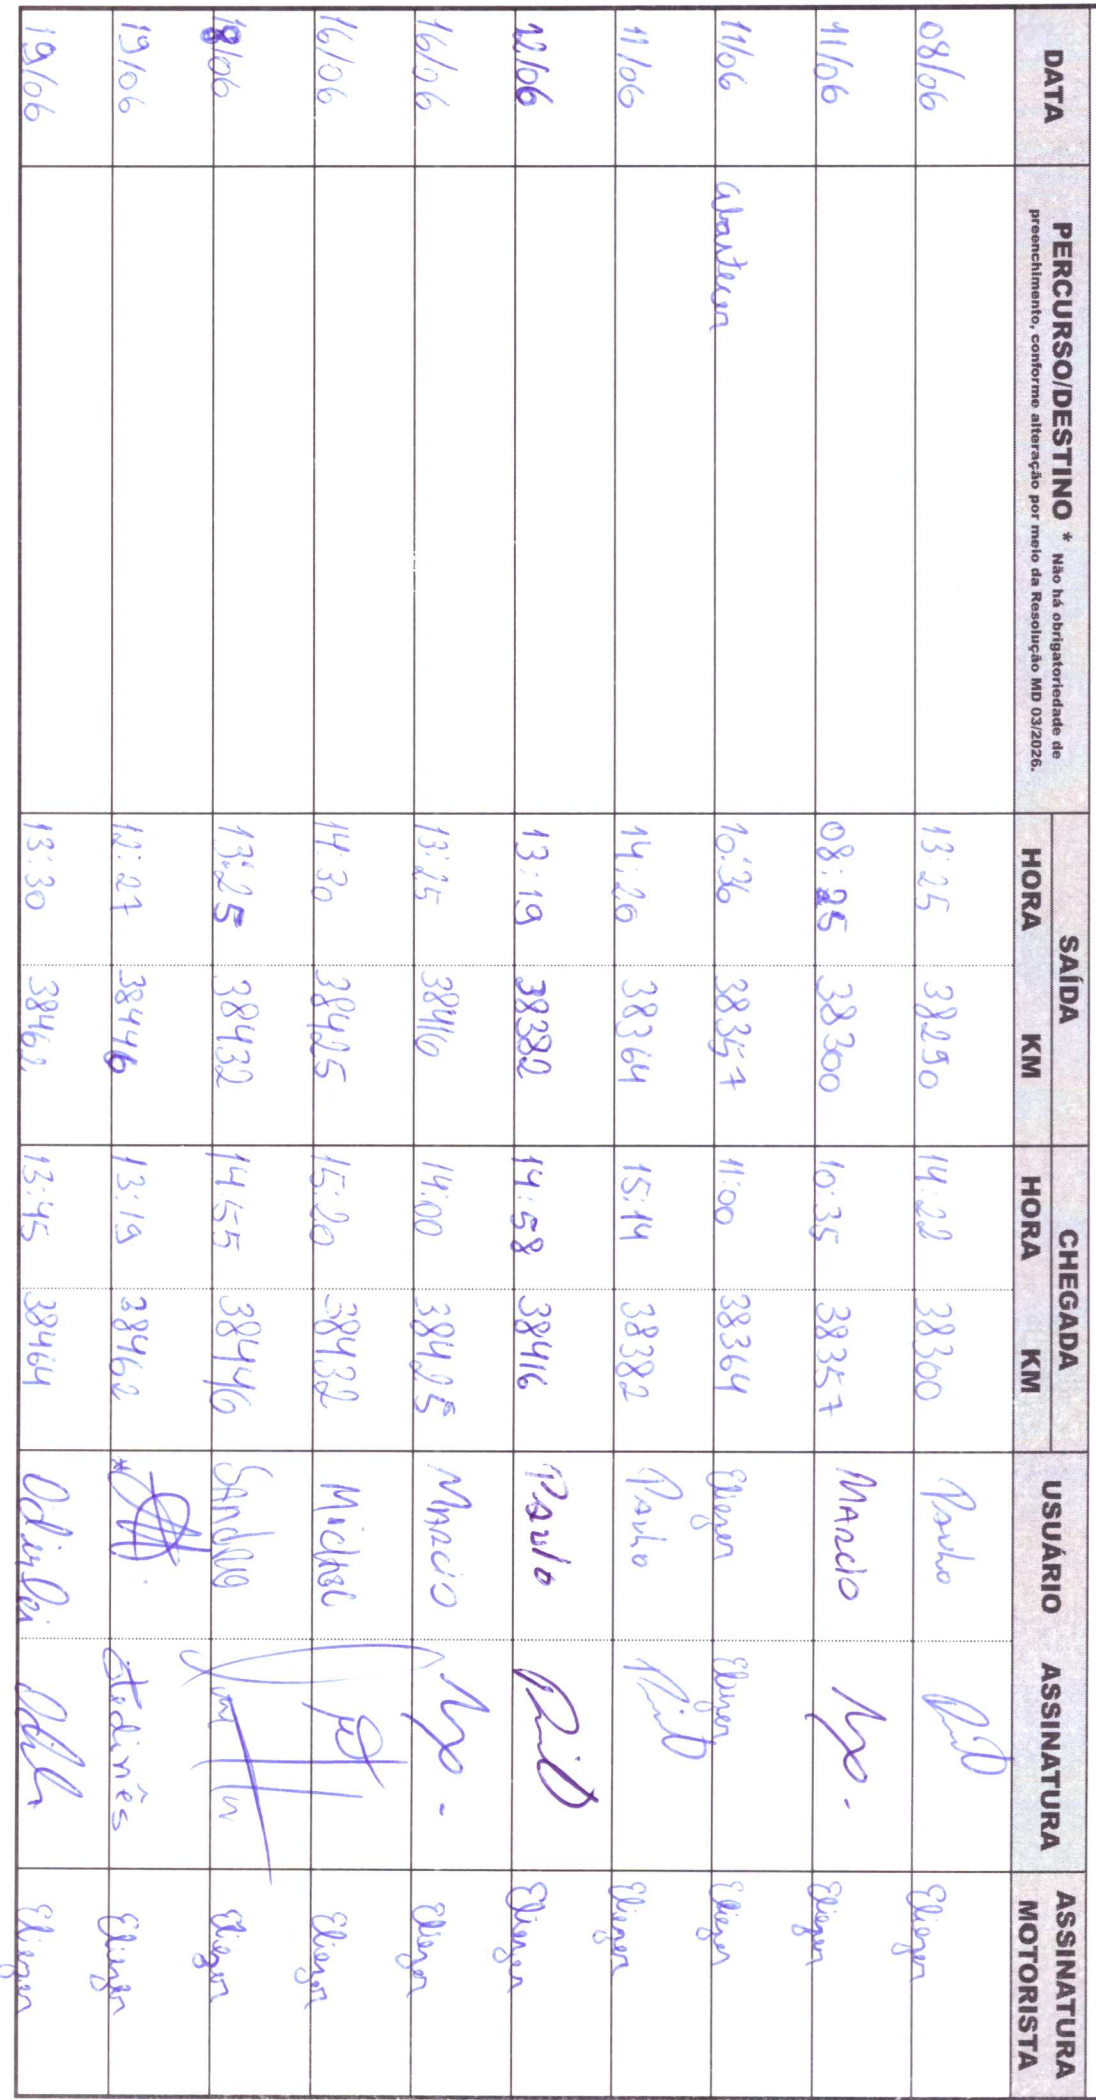 DATA PERCURSO/DESTINO * Não há obrigatoriedade de preenchimento, conforme alteração por meio da Resolução MD 03/2026. SAÍDA CHEGADA USUÁRIO ASSINATURA ASSINATURA MOTORISTA
HORA KM HORA KM
08/06 13:25 38290 14:22 38300 Paulo Eliezer
11/06 08:25 38300 10:35 38357 Marcio Eliezer
11/06 abastecer 10:36 38357 11:00 38364 Eliezer Eliezer Eliezer
11/06 14:20 38364 15:14 38382 Paulo Eliezer
12/06 13:19 38382 14:58 38416 Paulo Eliezer
16/06 13:25 38416 14:00 38425 Marcio Eliezer
16/06 14:30 38425 15:20 38432 Michael Eliezer
18/06 13:25 38432 14:55 38446 Sandro Eliezer
19/06 12:27 38446 13:19 38462 Eliezer
19/06 13:30 38462 13:45 38464 Odirlei Eliezer